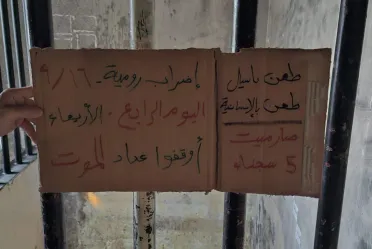 إضراب رومية - ٩/١٦
اليوم الرابع - الأربعاء
أوقفوا عداد الموت
طعن باسيل
طعن بالإنسانية
صار ميت
5 سجناء